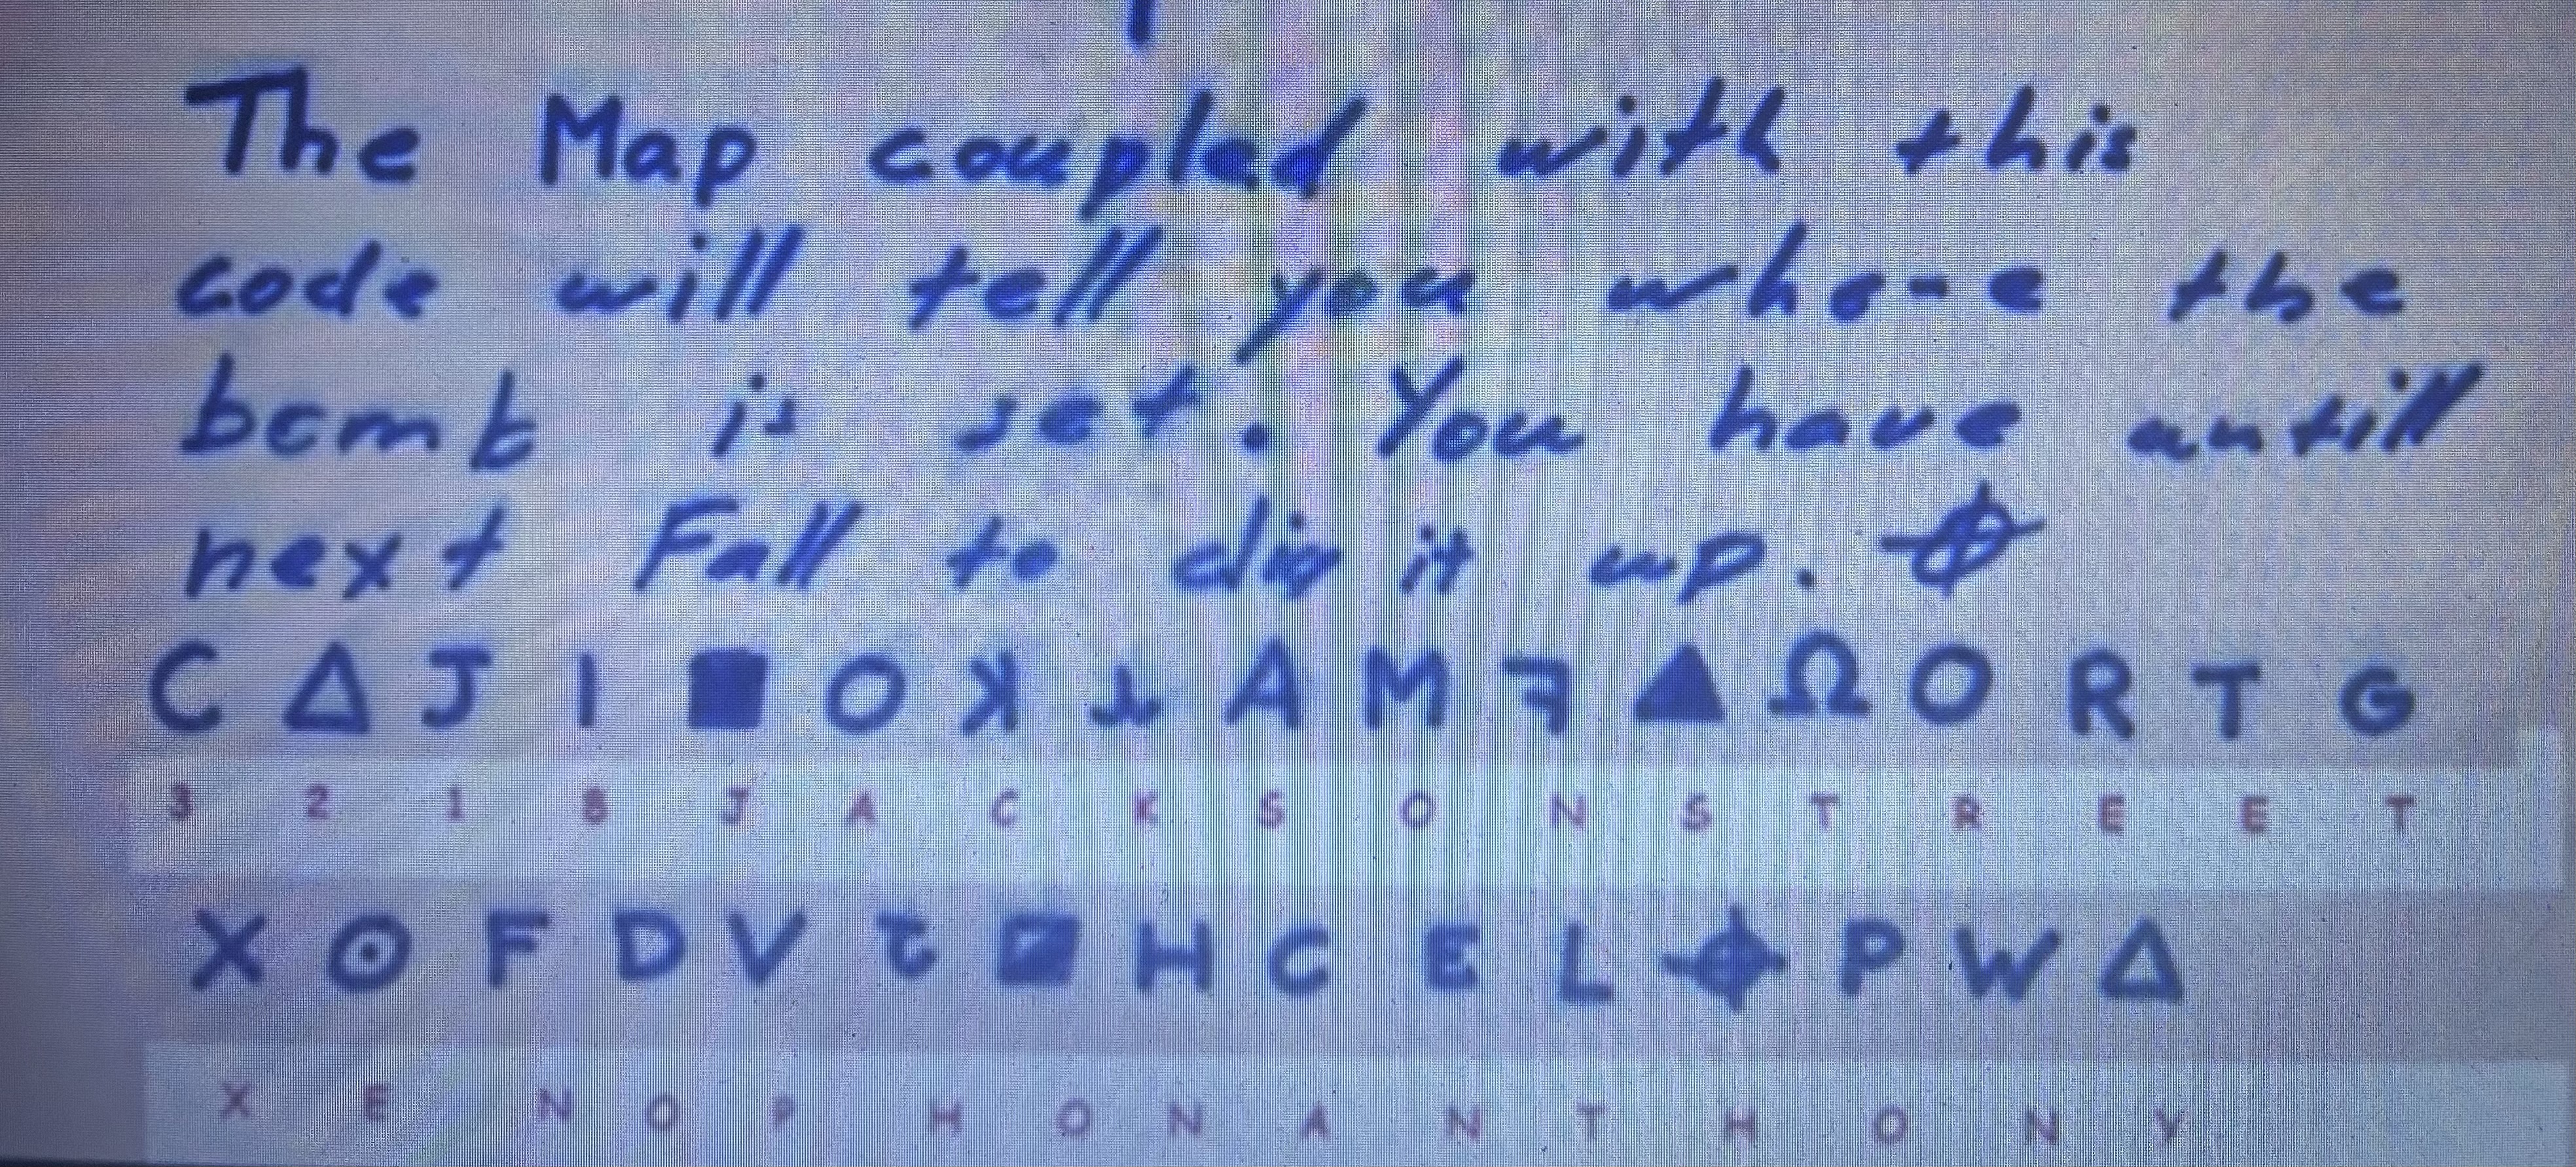 The Map coupled with this
code will tell you where the
bomb is set. You have untill
next Fall to dig it up. ⌖
C Δ J I ■ O ꓘ ⅄ A M ꟻ ▲ Ω O R T G
3 2 1 8 J A C K S O N S T R E E T
X ⊙ F D V ⴠ ◪ H C E L ⌖ P W Δ
X E N O P H O N A N T H O N Y